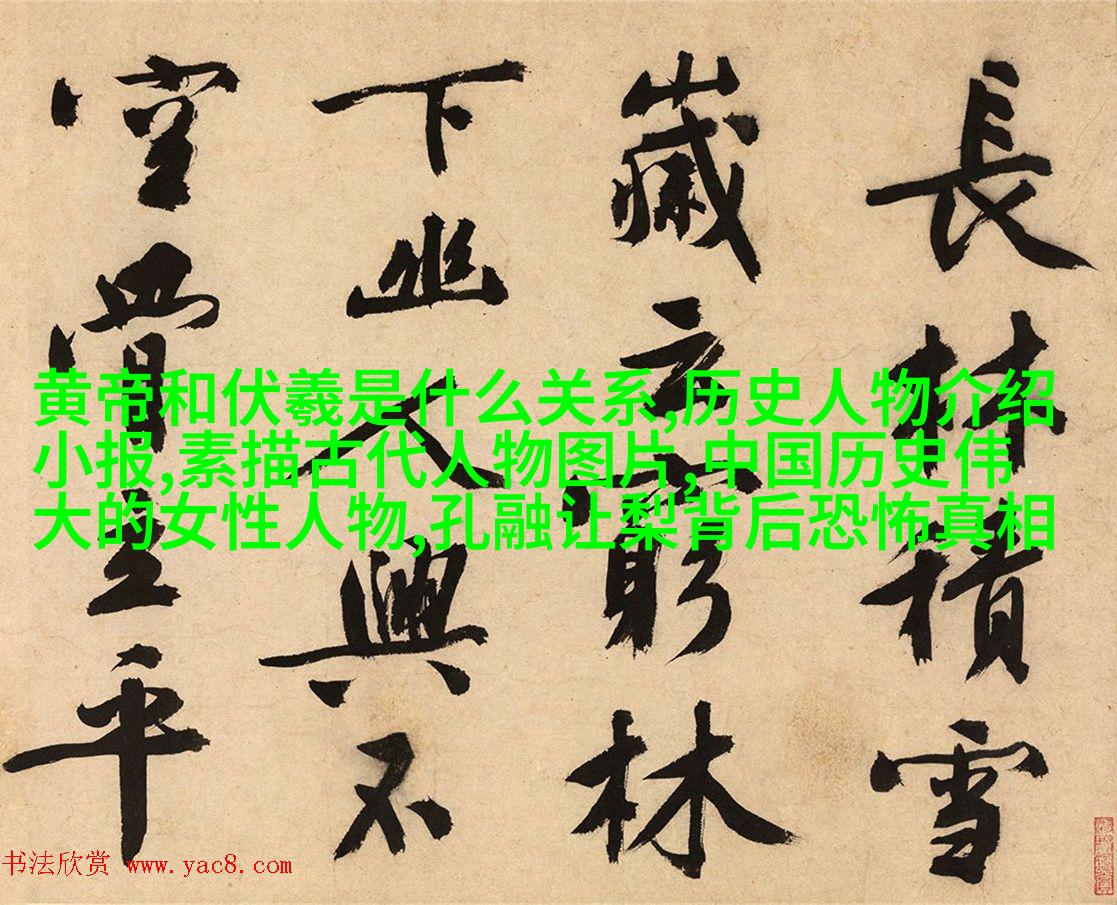 長林積雪
嵗云窮林
下幽人興不
平
黄帝和伏羲是什么关系,历史人物介绍
小报,素描古代人物图片,中国历史伟
大的女性人物,孔融让梨背后恐怖真相
书法欣赏 www.yac8.com